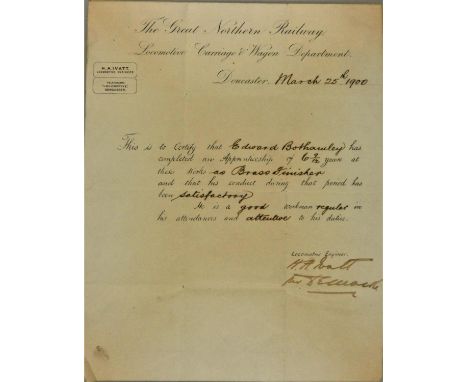 The Great Northern Railway.
Locomotive Carriage & Wagon Department.
H.A. IVATT.
LOCOMOTIVE ENGINEER
TELEGRAMS
"LOCOMOTIVE"
DONCASTER.
Doncaster, March 25th 1900
This is to Certify that Edward Bothamley has
completed an Apprenticeship of 6 7/12 years at
these Works as Brass Finisher
and that his conduct during that period has
been satisfactory
He is a good workman regular in
his attendances and attentive to his duties.
Locomotive Engineer.
H. A. Ivatt